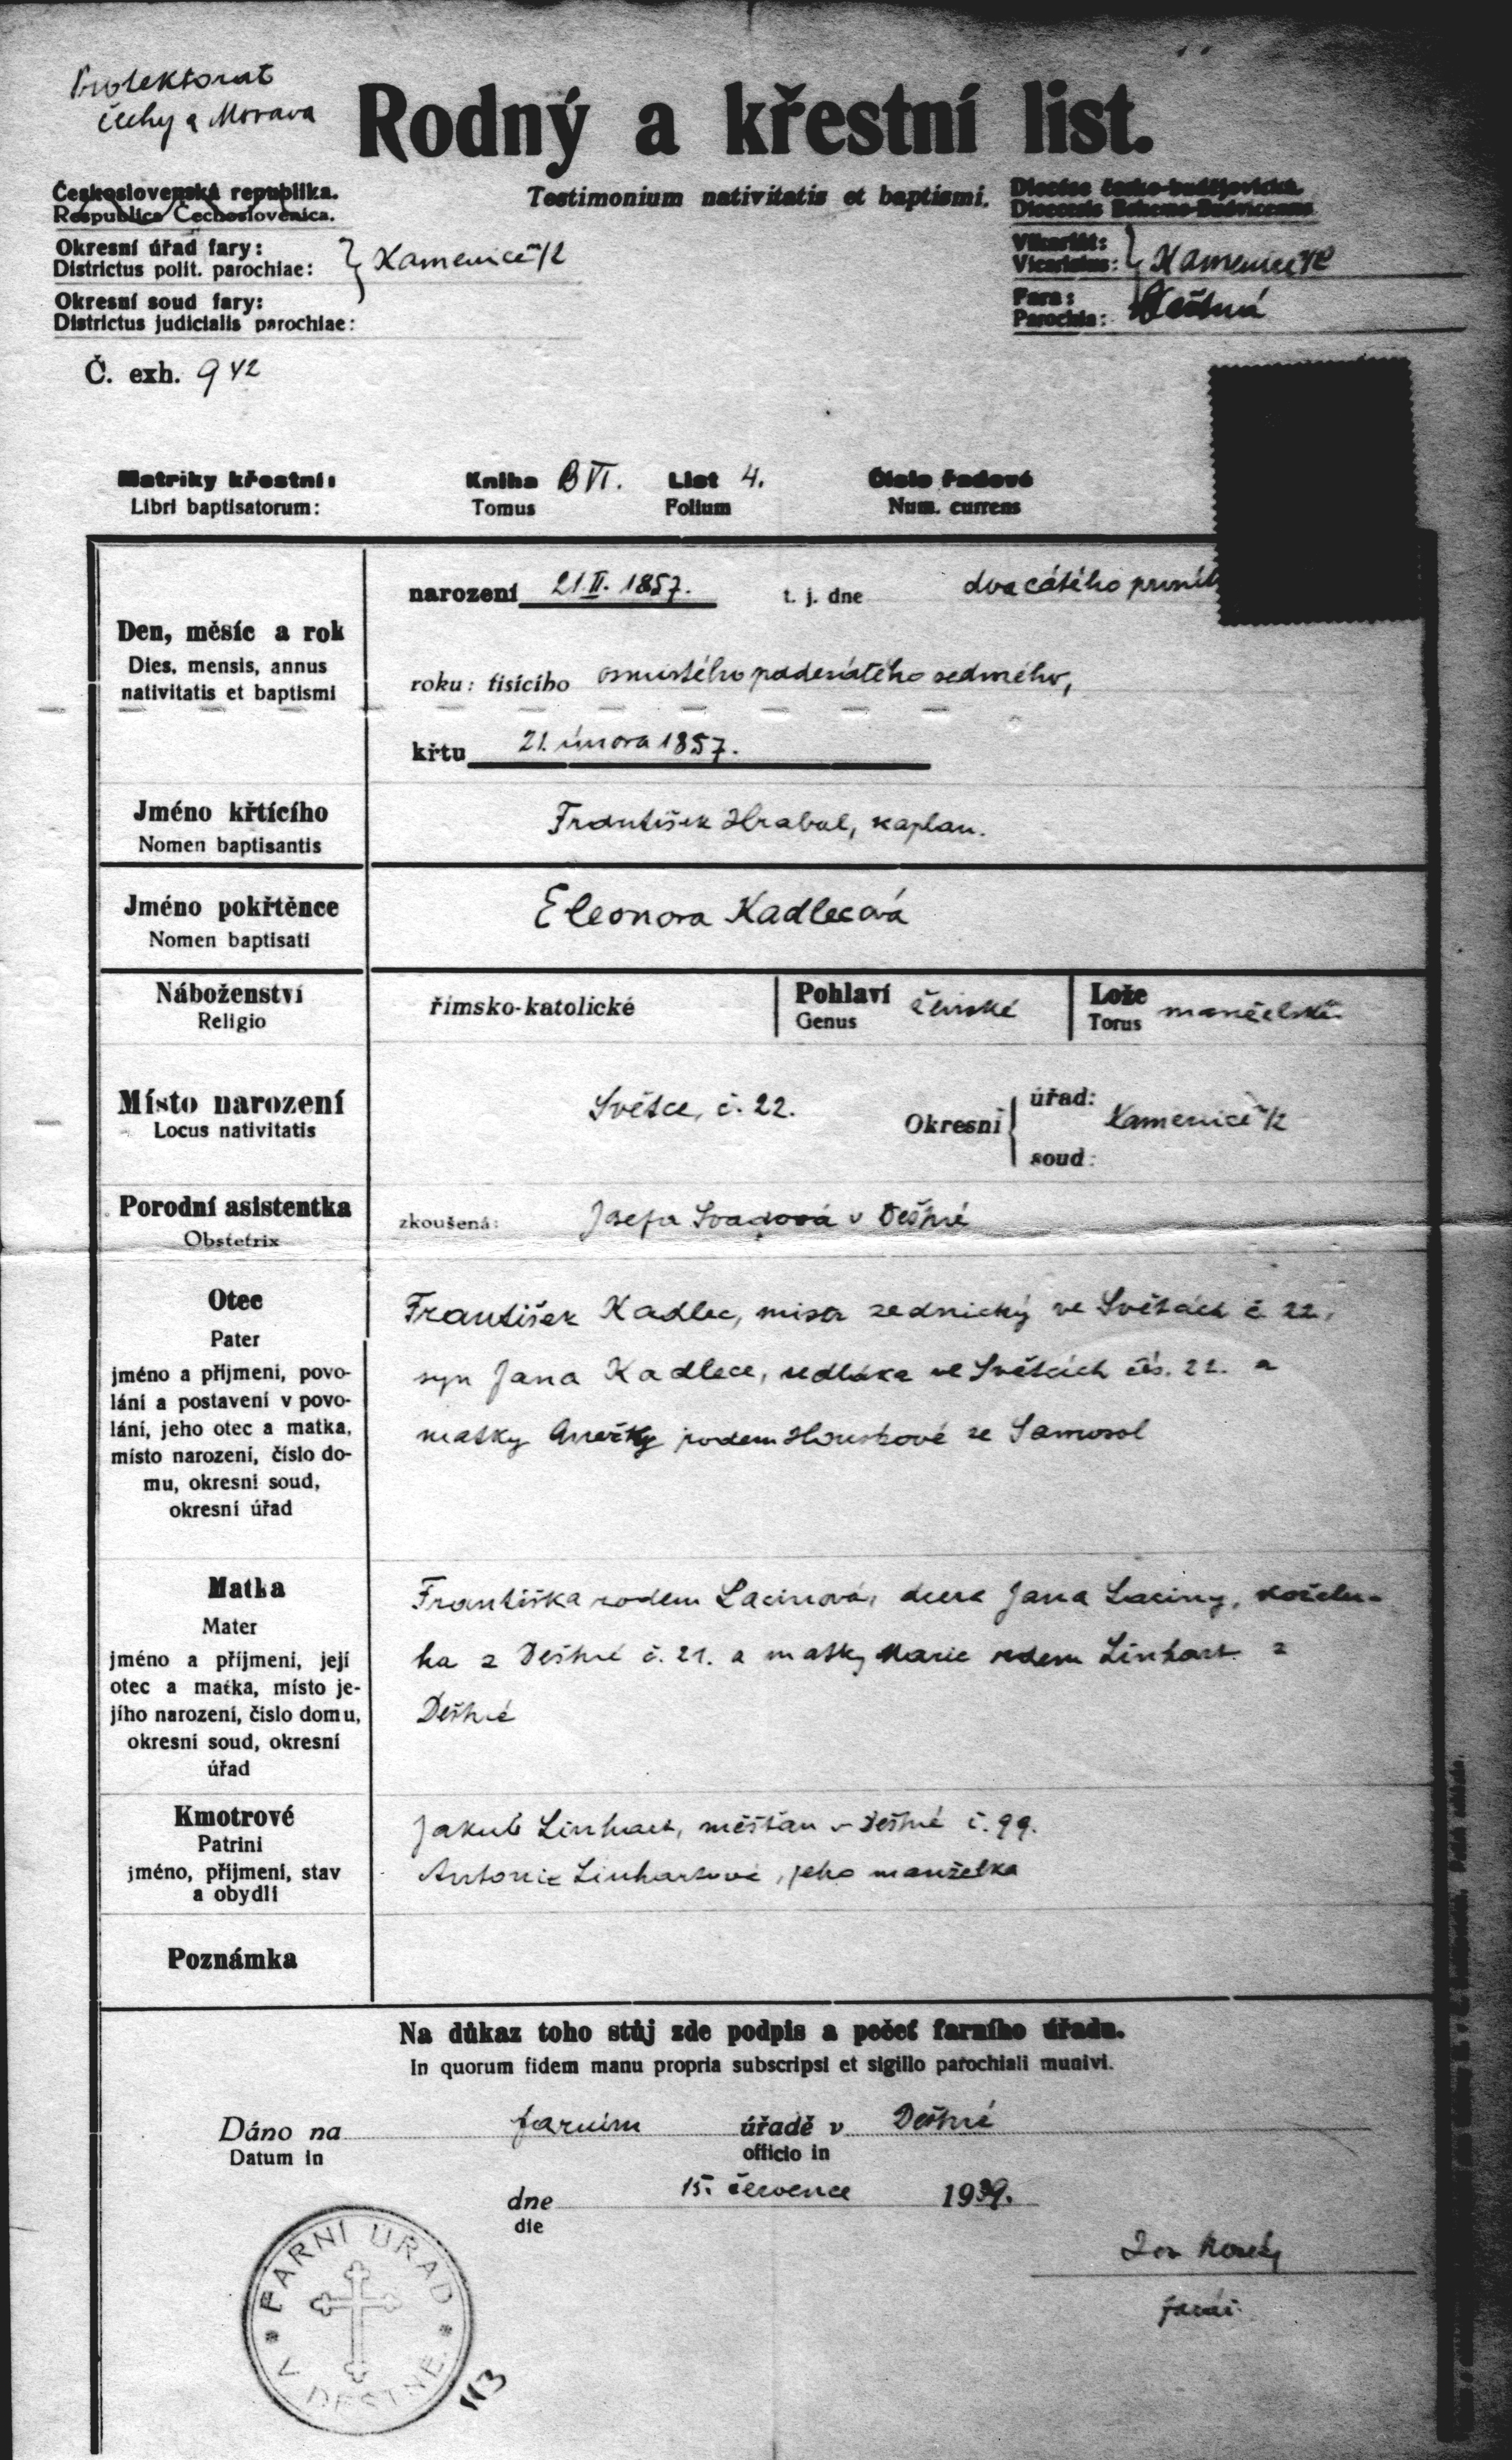 Protektorat
Čechy a Morava
Rodný a křestní list.
Československá republika.
Respublica Čechoslovenica.
Testimonium nativitatis et baptismi.
Diecéze česko-budějovická.
Dioecesis Bohemo-Budvicensis
Okresní úřad fary:
Districtus polit. parochiae:
Kamenice n/L
Okresní soud fary:
Districtus judicialis parochiae:
Vikariát:
Vicariatus:
Kamenice n/L
Fara:
Parochia:
Deštná
Č. exh. 942
Matriky křestní:
Libri baptisatorum:
Kniha B VI. List 4. Číslo řadové
Tomus Folium Num. currens
Den, měsíc a rok
Dies, mensis, annus
nativitatis et baptismi
narození 21.II.1857. t. j. dne dvacátého
roku: tisícího osmistého padesátého sedmého,
křtu 21. února 1857.
Jméno křtícího
Nomen baptisantis
František Hrabal, kaplan.
Jméno pokřtěnce
Nomen baptisati
Eleonora Kadlecová
Náboženství
Religio
římsko-katolické
Pohlaví ženské
Genus
Lože manželské
Torus
Místo narození
Locus nativitatis
Světce, č. 22.
Okresní
úřad:
Kamenice n/L
soud:
Porodní asistentka
Obstetrix
zkoušená: Josefa v Deštné
Otec
Pater
jméno a příjmení, povo-
lání a postavení v povo-
lání, jeho otec a matka,
místo narození, číslo do-
mu, okresní soud,
okresní úřad
František Kadlec, mistr zednický ve Světcích č 22,
syn Jana Kadlece, sedláka ve Světcích čís. 22. a
matky Anežky rodem Houskové ze Samosol
Matka
Mater
jméno a příjmení, její
otec a matka, místo je-
jího narození, číslo domu,
okresní soud, okresní
úřad
Františka rodem Lacinová, dcera Jana Laciny, koželu-
ha z Deštné č. 21. a matky Marie rodem Linhart. z
Deštné
Kmotrové
Patrini
jméno, příjmení, stav
a obydlí
Jakub Linhart, měšťan v Deštné č. 99.
Antonie Linhartová, jeho manželka
Poznámka
Na důkaz toho stůj zde podpis a pečeť farního úřadu.
In quorum fidem manu propria subscripsi et sigillo parochiali munivi.
Dáno na farním úřadě v Deštné
Datum in officio in
dne 15. července 1939.
die
farář
FARNÍ ÚŘAD
V DEŠTNÉ
113